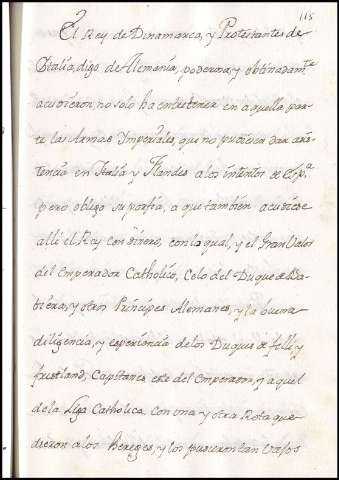 115
El Rey de Dinamarca, y Protestantes de
Ytalia, digo de Alemania, poderosa, y obstinadamte
acudieron, no solo ha entretener en aquella par=
te las Armas Imperiales, que no pudiesen dar asis=
tencia en Italia y Flandes a los intentos de Espa
pero obligo su porfia, a que tambien acudiese
alli el Rey con dinero, con la qual, y el Gran Valor
del Emperador Catholico, Celo del Duque de Ba=
biera, y otros Principes Alemanes, y la buena
diligencia, y esperiencia de los Duques de felli y
fristland, Capitanes este del Emperador, y aquel
de la Liga Catholica con una y otra Rota que
dieron a los Hereges, y los pusieron tan Vajos